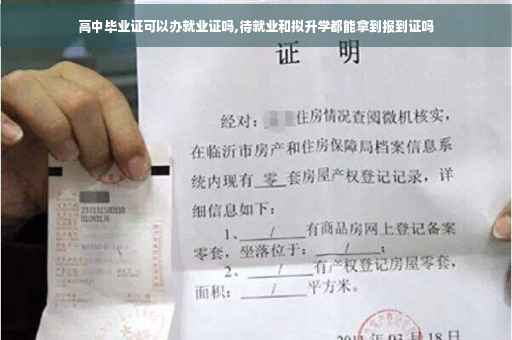 高中毕业证可以办就业证吗,待就业和拟升学都能拿到报到证吗
证 明
经对: 住房情况查阅微机核实,
在临沂市房产和住房保障局档案信息系
统内现有 零 套房屋产权登记记录, 详
细信息如下:
1、 / 有商品房网上登记备案
零套, 坐落位于: / ;
2、 / 有产权登记房屋零套,
面积: / 平方米。
03月18日